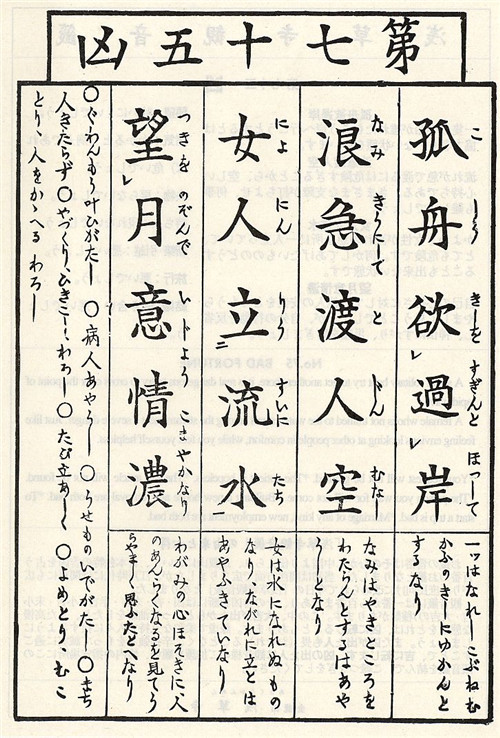 第七十五凶
孤舟欲過岸
こしうきしをすぎんとほつして
浪急渡人空
なみきうにしてじんむなし
女人立流水
によにんりうすいにたち
望月意情濃
つきをのぞんでいじようこまやかなり
一ッはなれしこぶねむ
かふのきしにゆかんと
するなり
なみはやきところを
わたらんとするはあや
うしとなり
女は水になれぬもの
なりながれに立とは
あやふきていなり
わがみの心ほそきに人
のあんらくなるを見てう
らやましく思ふたとへなり
〇ぐわんもう叶ひがたし 〇病人あやうし 〇うせものいでがたし 〇まち
人きたらず〇やづくり、ひきこし、わろし〇たび立あしく〇よめとり、むこ
とり、人をかゝへるわろし